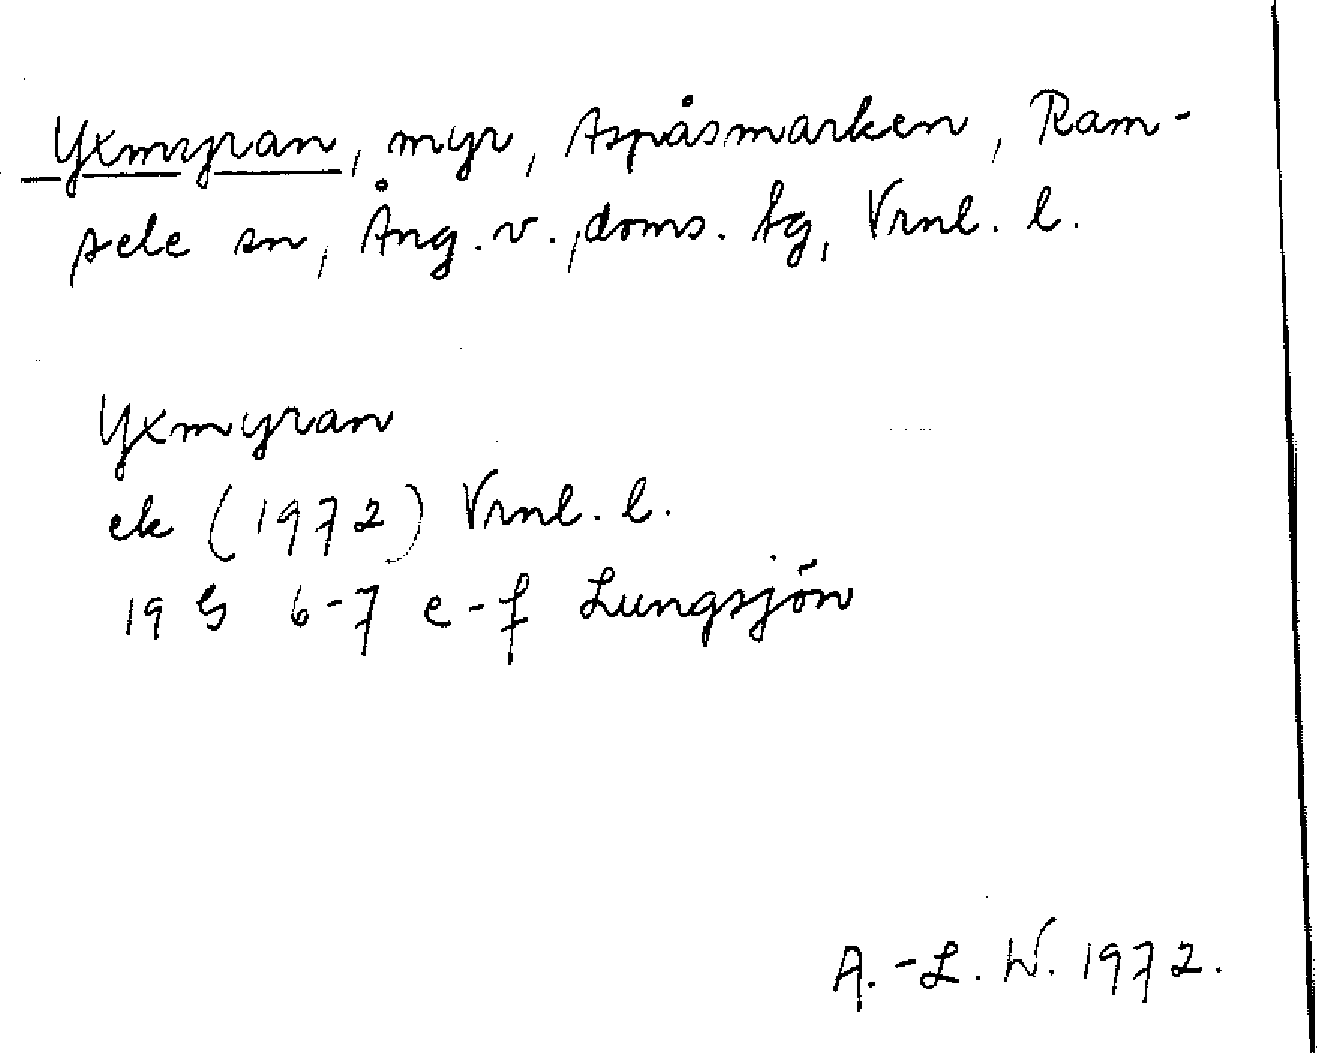 Yxmyran, myr, Aspåsmarken, Ram-
sele sn, Ång. v., doms. tg, Vrnl. l.
Yxmyran
ek (1972) Vrnl. l.
19 G 6-7 e-f Lungsjön
A.-L. W. 1972.